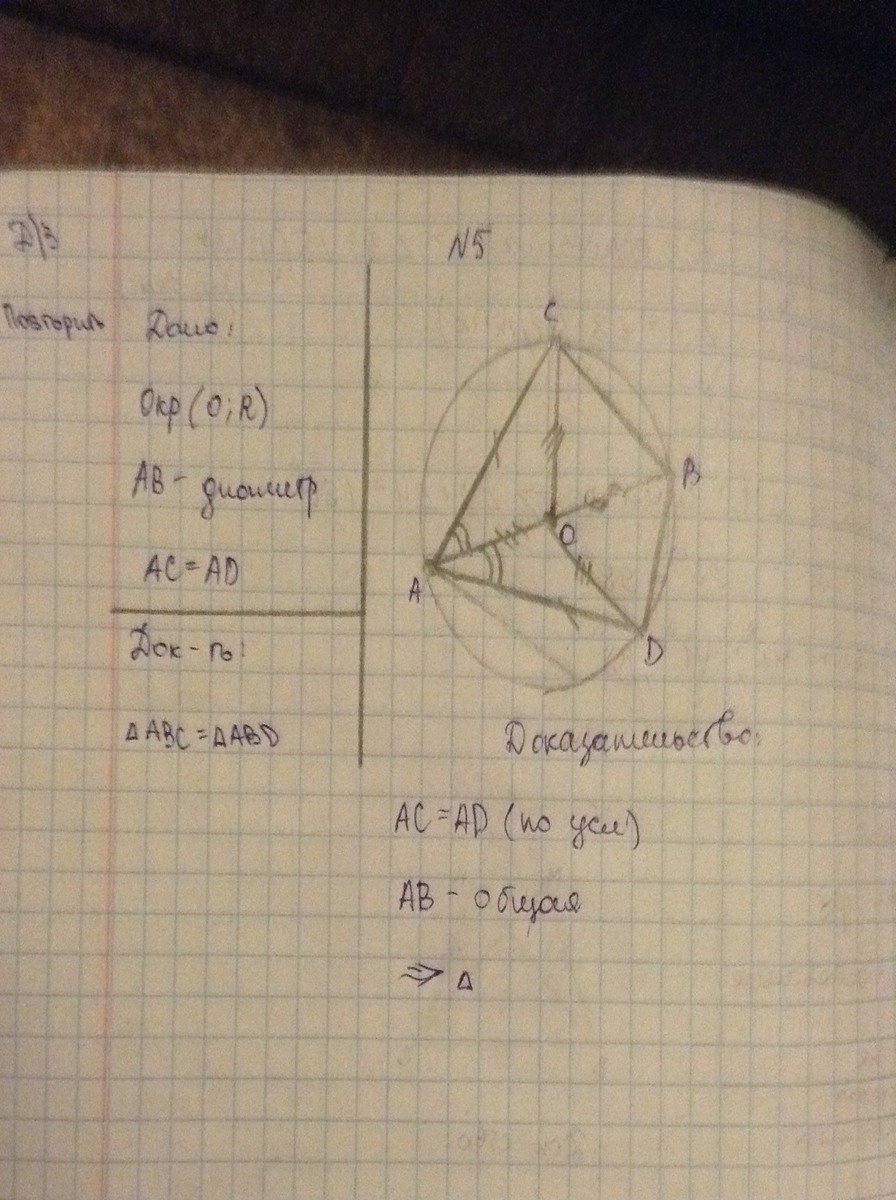 Д/з
N5
Повторить
Дано:
Окр (O; R)
AB - диаметр
AC = AD
Док-ть:
△ABC = △ABD
C
B
O
A
D
Доказательство:
AC = AD (по усл)
AB - общая
⇒ △